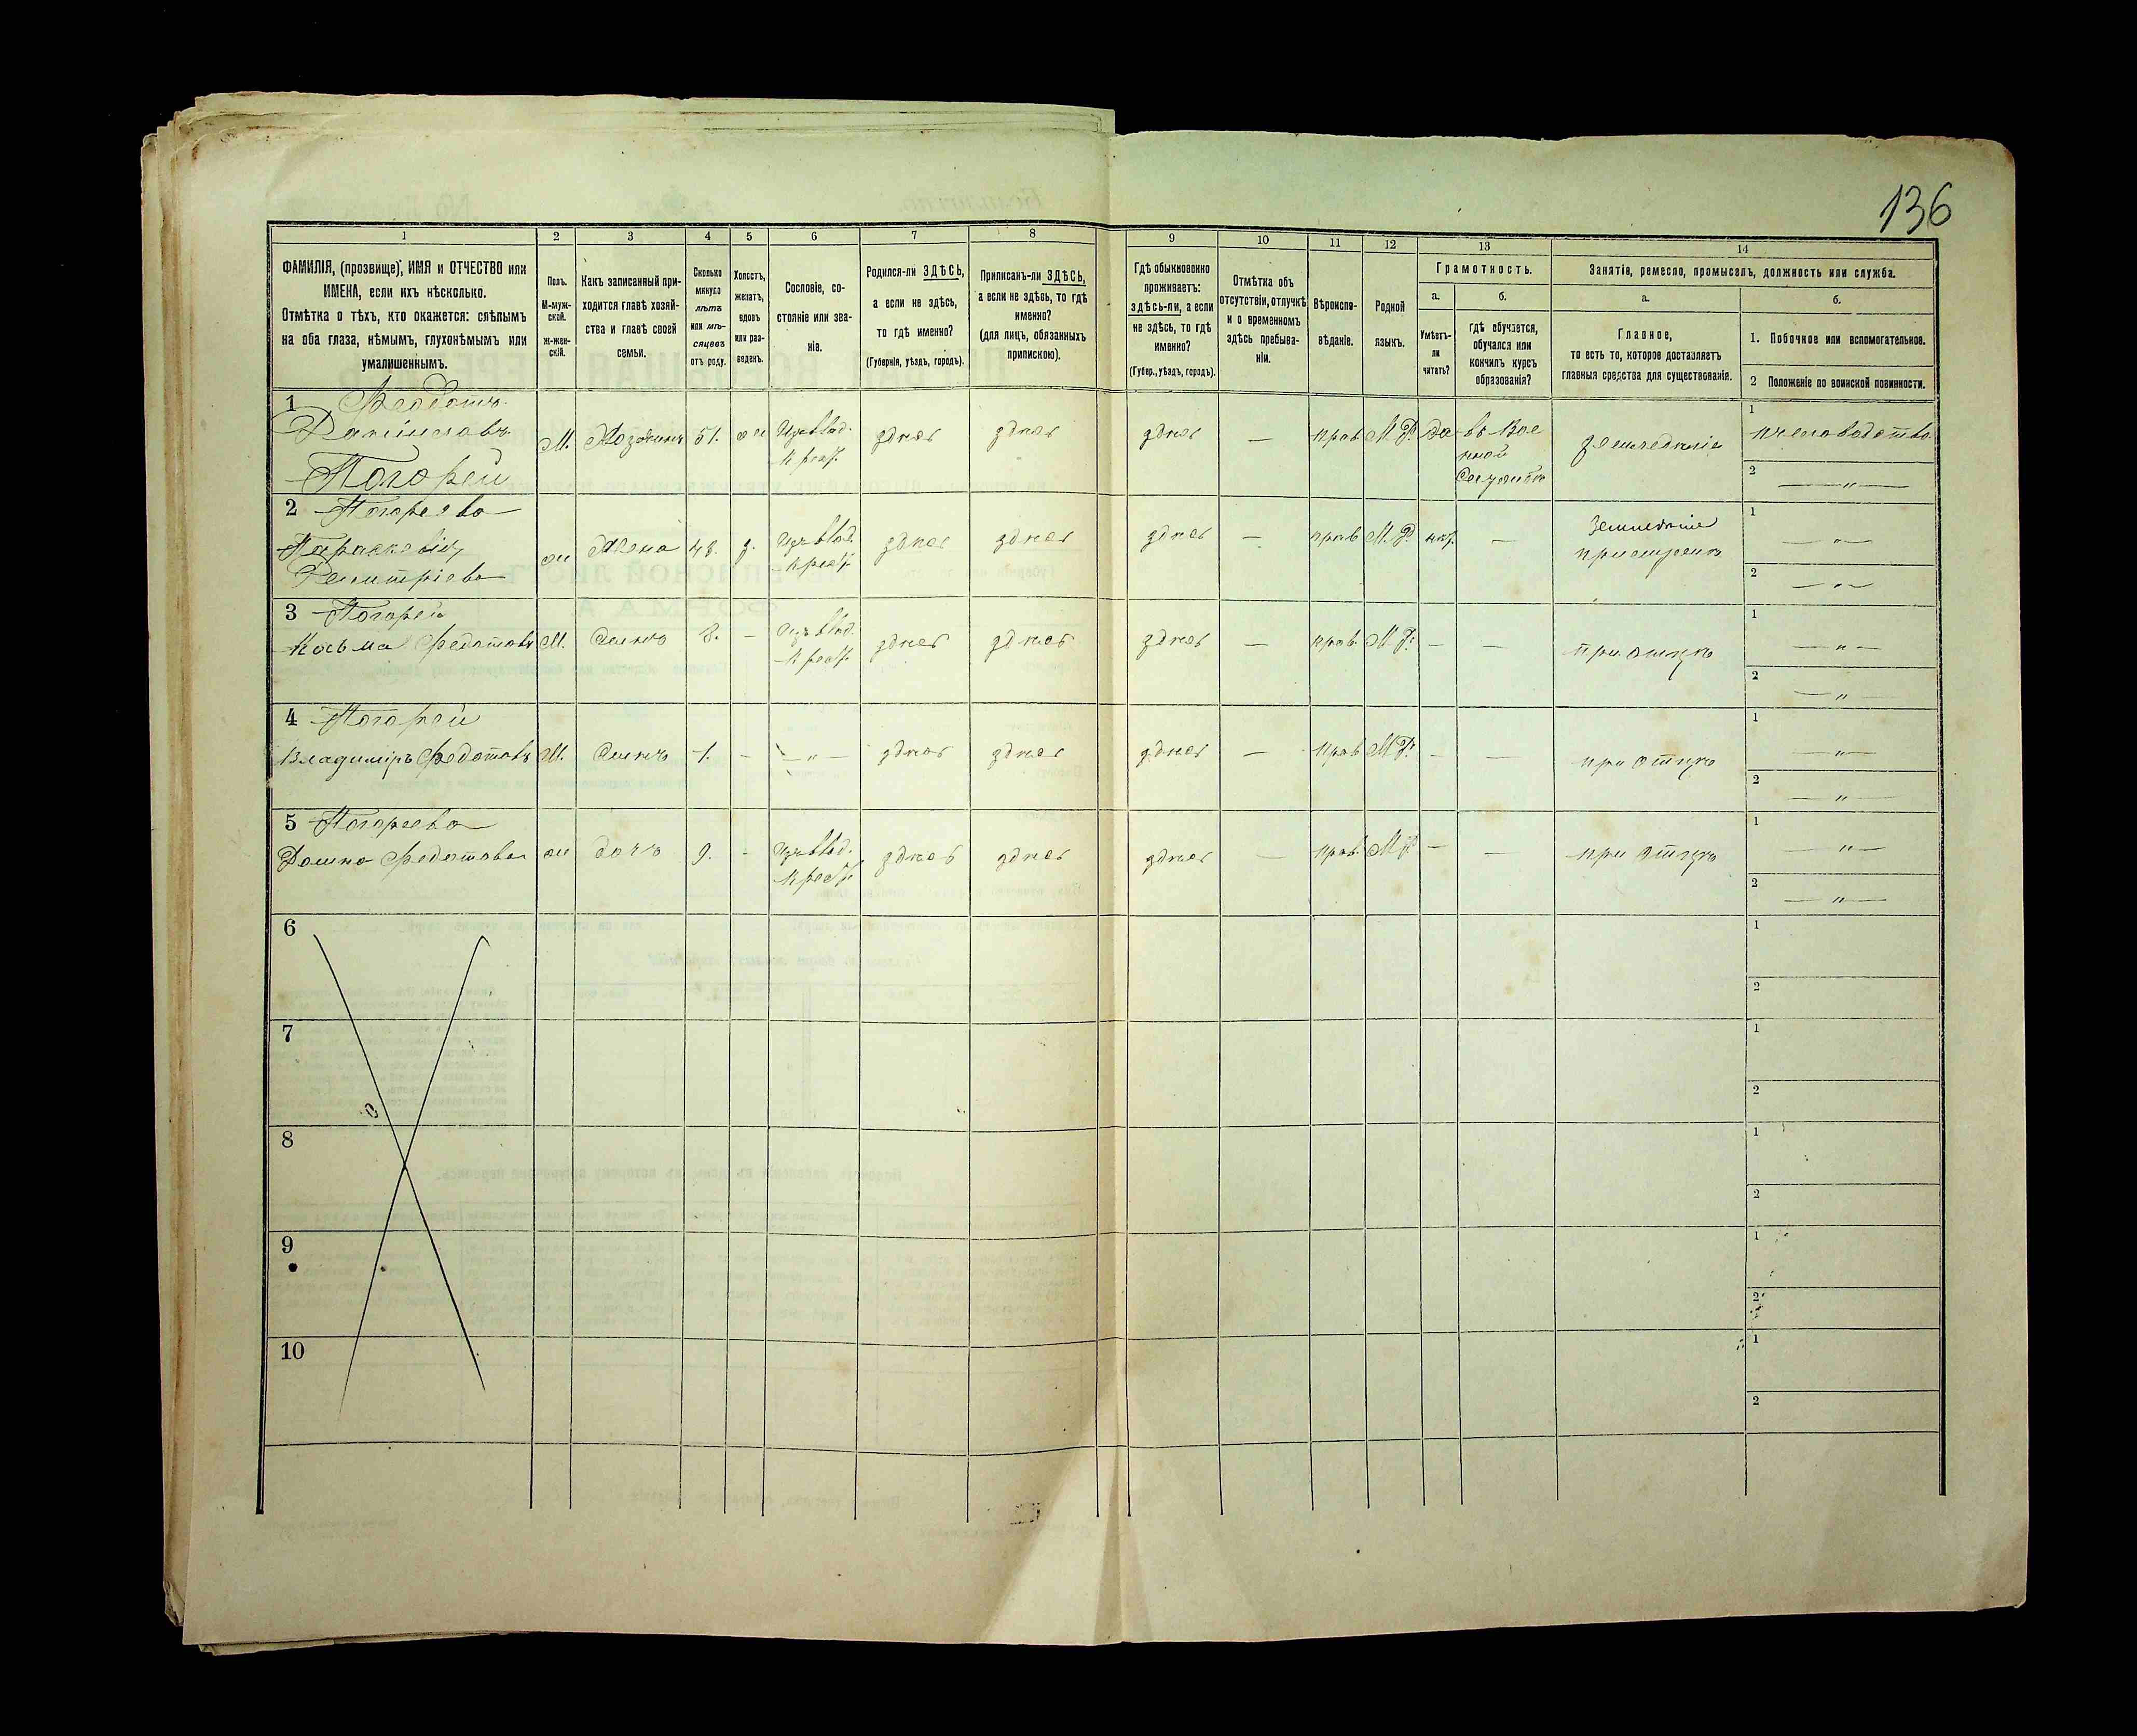 136
1 2 3 4 5 6 7 8 9 10 11 12 13 14
ФАМИЛІЯ, (прозвище), ИМЯ и ОТЧЕСТВО или
ИМЕНА, если ихъ нѣсколько.
Отмѣтка о тѣхъ, кто окажется: слѣпымъ
на оба глаза, нѣмымъ, глухонѣмымъ или
умалишеннымъ.
Полъ.
М-муж-
ской.
Ж-жен-
скій.
Какъ записанный при-
ходится главѣ хозяй-
ства и главѣ своей
семьи.
Сколько
минуло
лѣтъ
или мѣ-
сяцевъ
отъ роду.
Холостъ,
женатъ,
вдовъ
или раз-
веденъ.
Сословіе, со-
стояніе или зва-
ніе.
Родился-ли ЗДѢСЬ,
а если не здѣсь,
то гдѣ именно?
(Губернія, уѣздъ, городъ).
Приписанъ-ли ЗДѢСЬ,
а если не здѣсь, то гдѣ
именно?
(для лицъ, обязанныхъ
припискою).
Гдѣ обыкновенно
проживаетъ:
здѣсь-ли, а если
не здѣсь, то гдѣ
именно?
(Губер., уѣздъ, городъ).
Отмѣтка объ
отсутствіи, отлучкѣ
и о временномъ
здѣсь пребыва-
ніи.
Вѣроиспо-
вѣданіе.
Родной
языкъ.
Грамотность.
а.
Умѣетъ-
ли
читать?
б.
гдѣ обучается,
обучался или
кончилъ курсъ
образованія?
Занятіе, ремесло, промыселъ, должность или служба.
а.
Главное,
то есть то, которое доставляетъ
главныя средства для существованія.
б.
1. Побочное или вспомогательное.
2 Положеніе по воинской повинности.
1 Федотъ
Даниловъ
Погорѣй
М. Хозяинъ 51. Из. влад. крест. здѣсь здѣсь здѣсь — прав. М.Р. да
земледѣліе
1 пчеловодство
2 — " —
2 Погорѣева
Параскевія
Дмитріева
жена 48. Из. влад. крест. здѣсь здѣсь здѣсь — прав. М.Р. —
Земледѣліе
1 — " —
2 — " —
3 Погорѣй
Косьма Федотовъ М. Сынъ Из. влад. крест. здѣсь здѣсь здѣсь — прав. М.Р. — — при отцѣ
1 — " —
2 — " —
4 Погорѣй
Владиміръ Федотовъ М. Сынъ 1. — — " — здѣсь здѣсь здѣсь — прав. М.Р. — — при отцѣ
1 — " —
2 — " —
5 Погорѣева
Домна Федотова дочь 9. - Из. влад. крест. здѣсь здѣсь здѣсь — прав. М.Р. — — при отцѣ
1 — " —
2 — " —
6
1
2
7
1
2
8
1
2
9
1
2
10
1
2